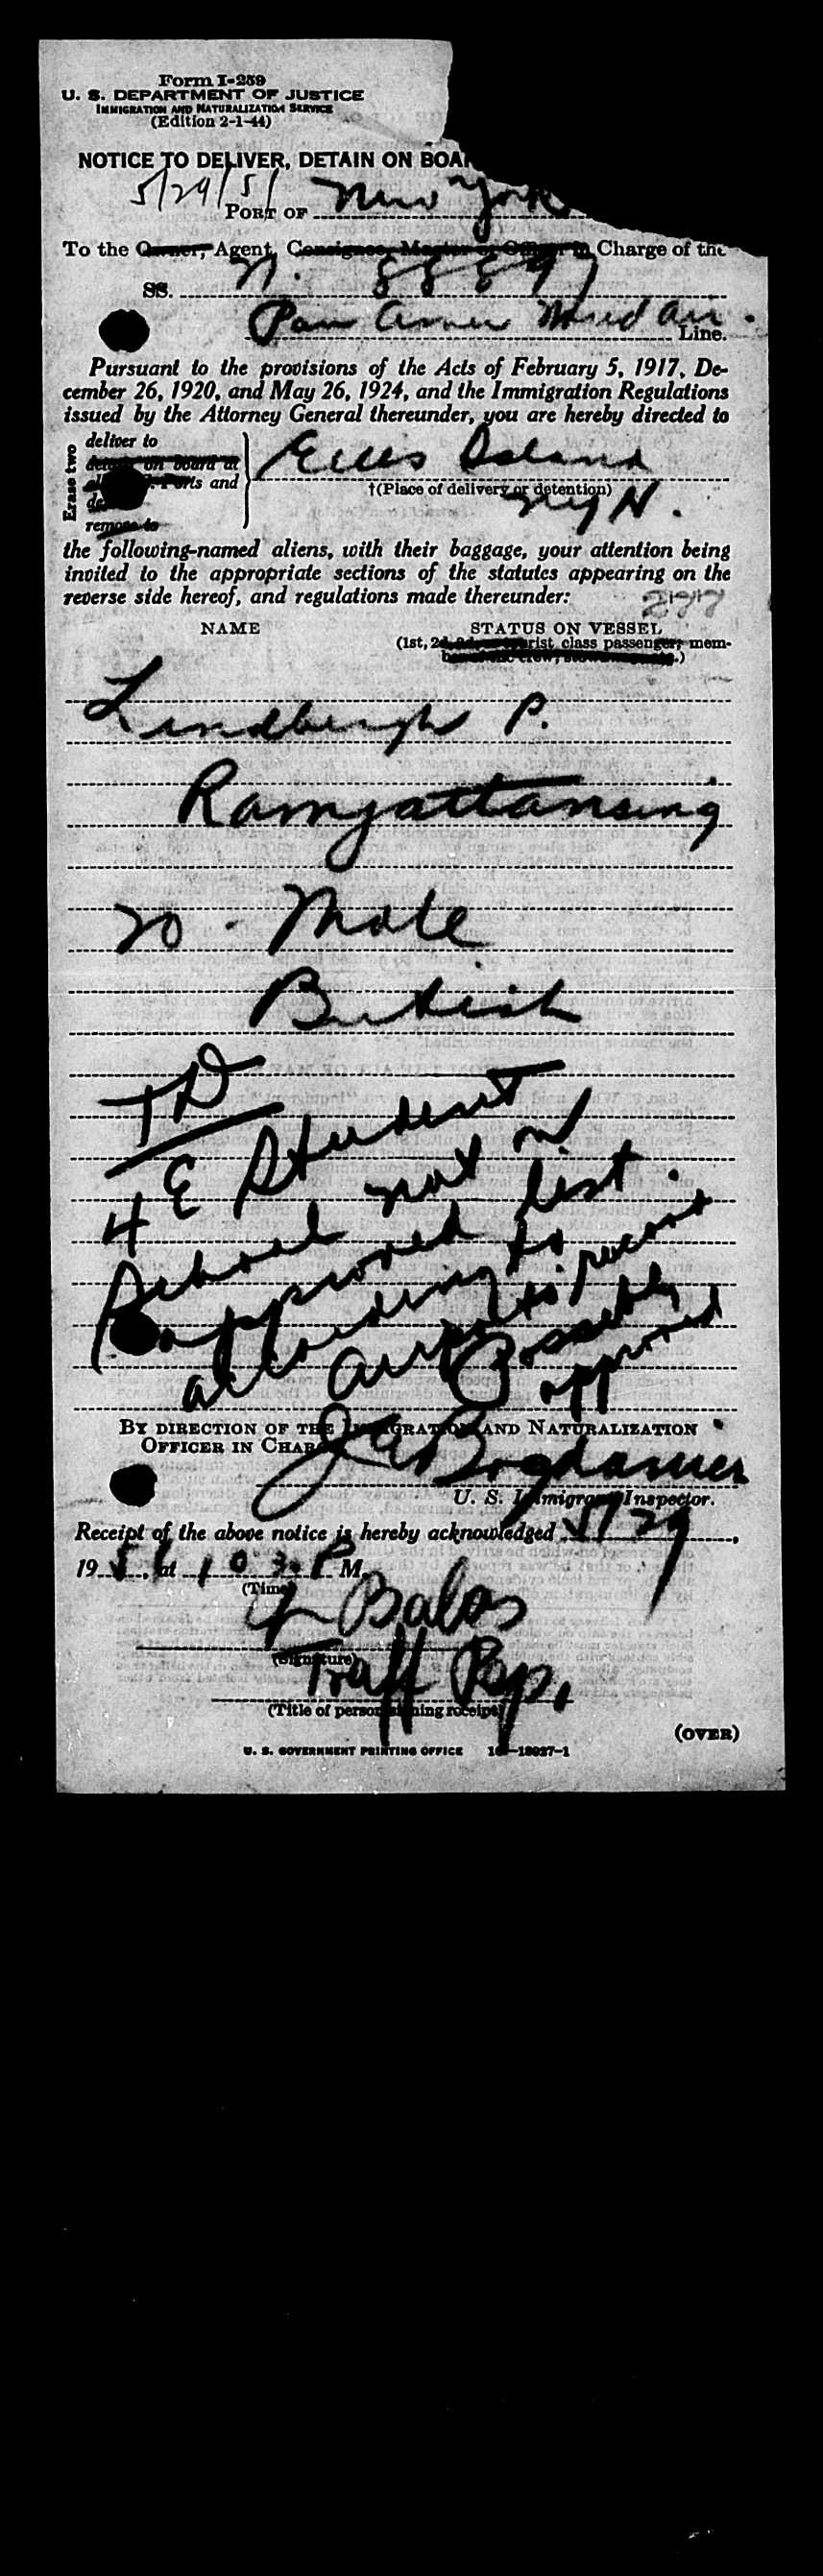 Form I-259
U. S. DEPARTMENT OF JUSTICE
IMMIGRATION AND NATURALIZATION SERVICE
(Edition 2-1-44)
NOTICE TO DELIVER, DETAIN ON BOA
5/29/51
PORT OF New York
To the Owner, Agent, Consignee, Master or Officer in Charge of the
SS. N. 88897
Pan Amer World Air. Line.
Pursuant to the provisions of the Acts of February 5, 1917, De-
cember 26, 1920, and May 26, 1924, and the Immigration Regulations
issued by the Attorney General thereunder, you are hereby directed to
Erase two
deliver to
on board at
Ports and
remove to
Ellis Island
†(Place of delivery or detention)
NYH.
the following-named aliens, with their baggage, your attention being
invited to the appropriate sections of the statutes appearing on the
reverse side hereof, and regulations made thereunder:
NAME
STATUS ON VESSEL
(1st, 2d, class passenger, mem-
.)
Lindbergh P.
Ramjattansing
20 - Male
British
TD
4 E Student
School not on
approved list.
according to
airport
Possibly
approved
BY DIRECTION OF THE IMMIGRATION AND NATURALIZATION
OFFICER IN CHARGE
U. S. Immigrant Inspector.
Receipt of the above notice is hereby acknowledged 5/29,
1951, at 103. P M.
(Time)
Balos
(Signature)
Traff Rep.
(Title of person signing receipt)
(OVER)
U. S. GOVERNMENT PRINTING OFFICE 16—18027-1